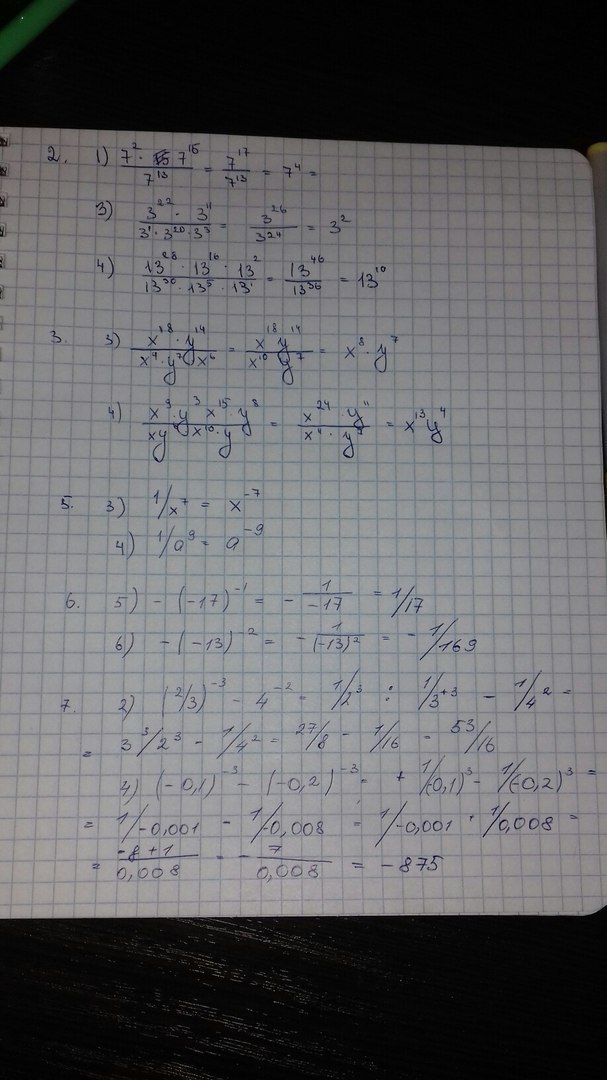 2. 1) 7² · 7¹⁵ / 7¹³ = 7¹⁷ / 7¹³ = 7⁴ =
3) 3²² · 3⁴ / 3¹ · 3²⁰ · 3³ = 3²⁶ / 3²⁴ = 3²
4) 13²⁸ · 13¹⁶ · 13² / 13³⁰ · 13⁵ · 13¹ = 13⁴⁶ / 13³⁶ = 13¹⁰
3. 3) x¹⁸ · y¹⁴ / x⁴ · y⁷ · x⁶ = x¹⁸ y¹⁴ / x¹⁰ y⁷ = x⁸ · y⁷
4) x⁹ · y³ x¹⁵ · y⁸ / xy x¹⁰ · y = x²⁴ · y¹¹ / x · y = x¹³ y⁴
5. 3) 1/x⁷ = x⁻⁷
4) 1/a⁹ = a⁻⁹
6. 5) - (-17)⁻¹ = - 1 / -17 = 1/17
6) - (-13)⁻² = - 1 / (-13)² = - 1/169
7. 2) (2/3)⁻³ - 4⁻² = 1/2³ : 1/3⁺³ - 1/4² =
= 3³/2³ - 1/4² = 27/8 - 1/16 = 53/16
4) (-0,1)⁻³ - (-0,2)⁻³ = + 1/(-0,1)³ - 1/(-0,2)³ =
= 1/-0,001 - 1/-0,008 = 1/-0,001 + 1/0,008 =
= -8+1 / 0,008 = - 7 / 0,008 = -875